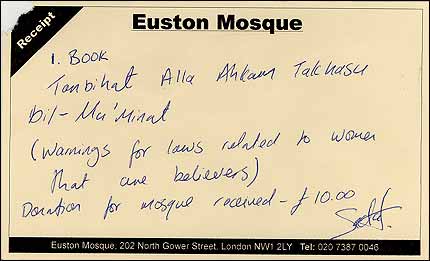 Receipt
Euston Mosque
1. Book
Tanbihat Alla Ahkam Takhasu
bil-Mu'Minat
(Warnings for laws related to women
that are believers)
Donation for mosque received - £10.00
Euston Mosque, 202 North Gower Street, London NW1 2LY Tel: 020 7387 0046